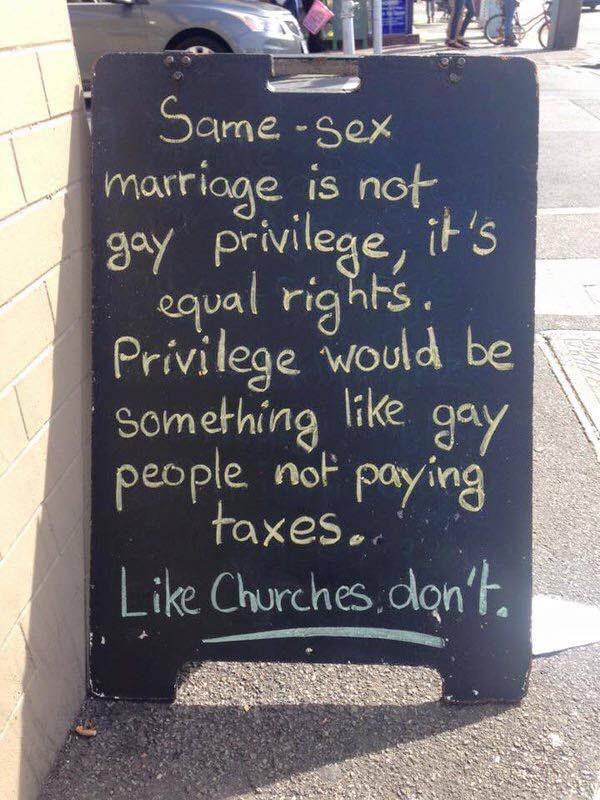 Same-sex
marriage is not
gay privilege, it's
equal rights.
Privilege would be
something like gay
people not paying
taxes.
Like Churches don't.